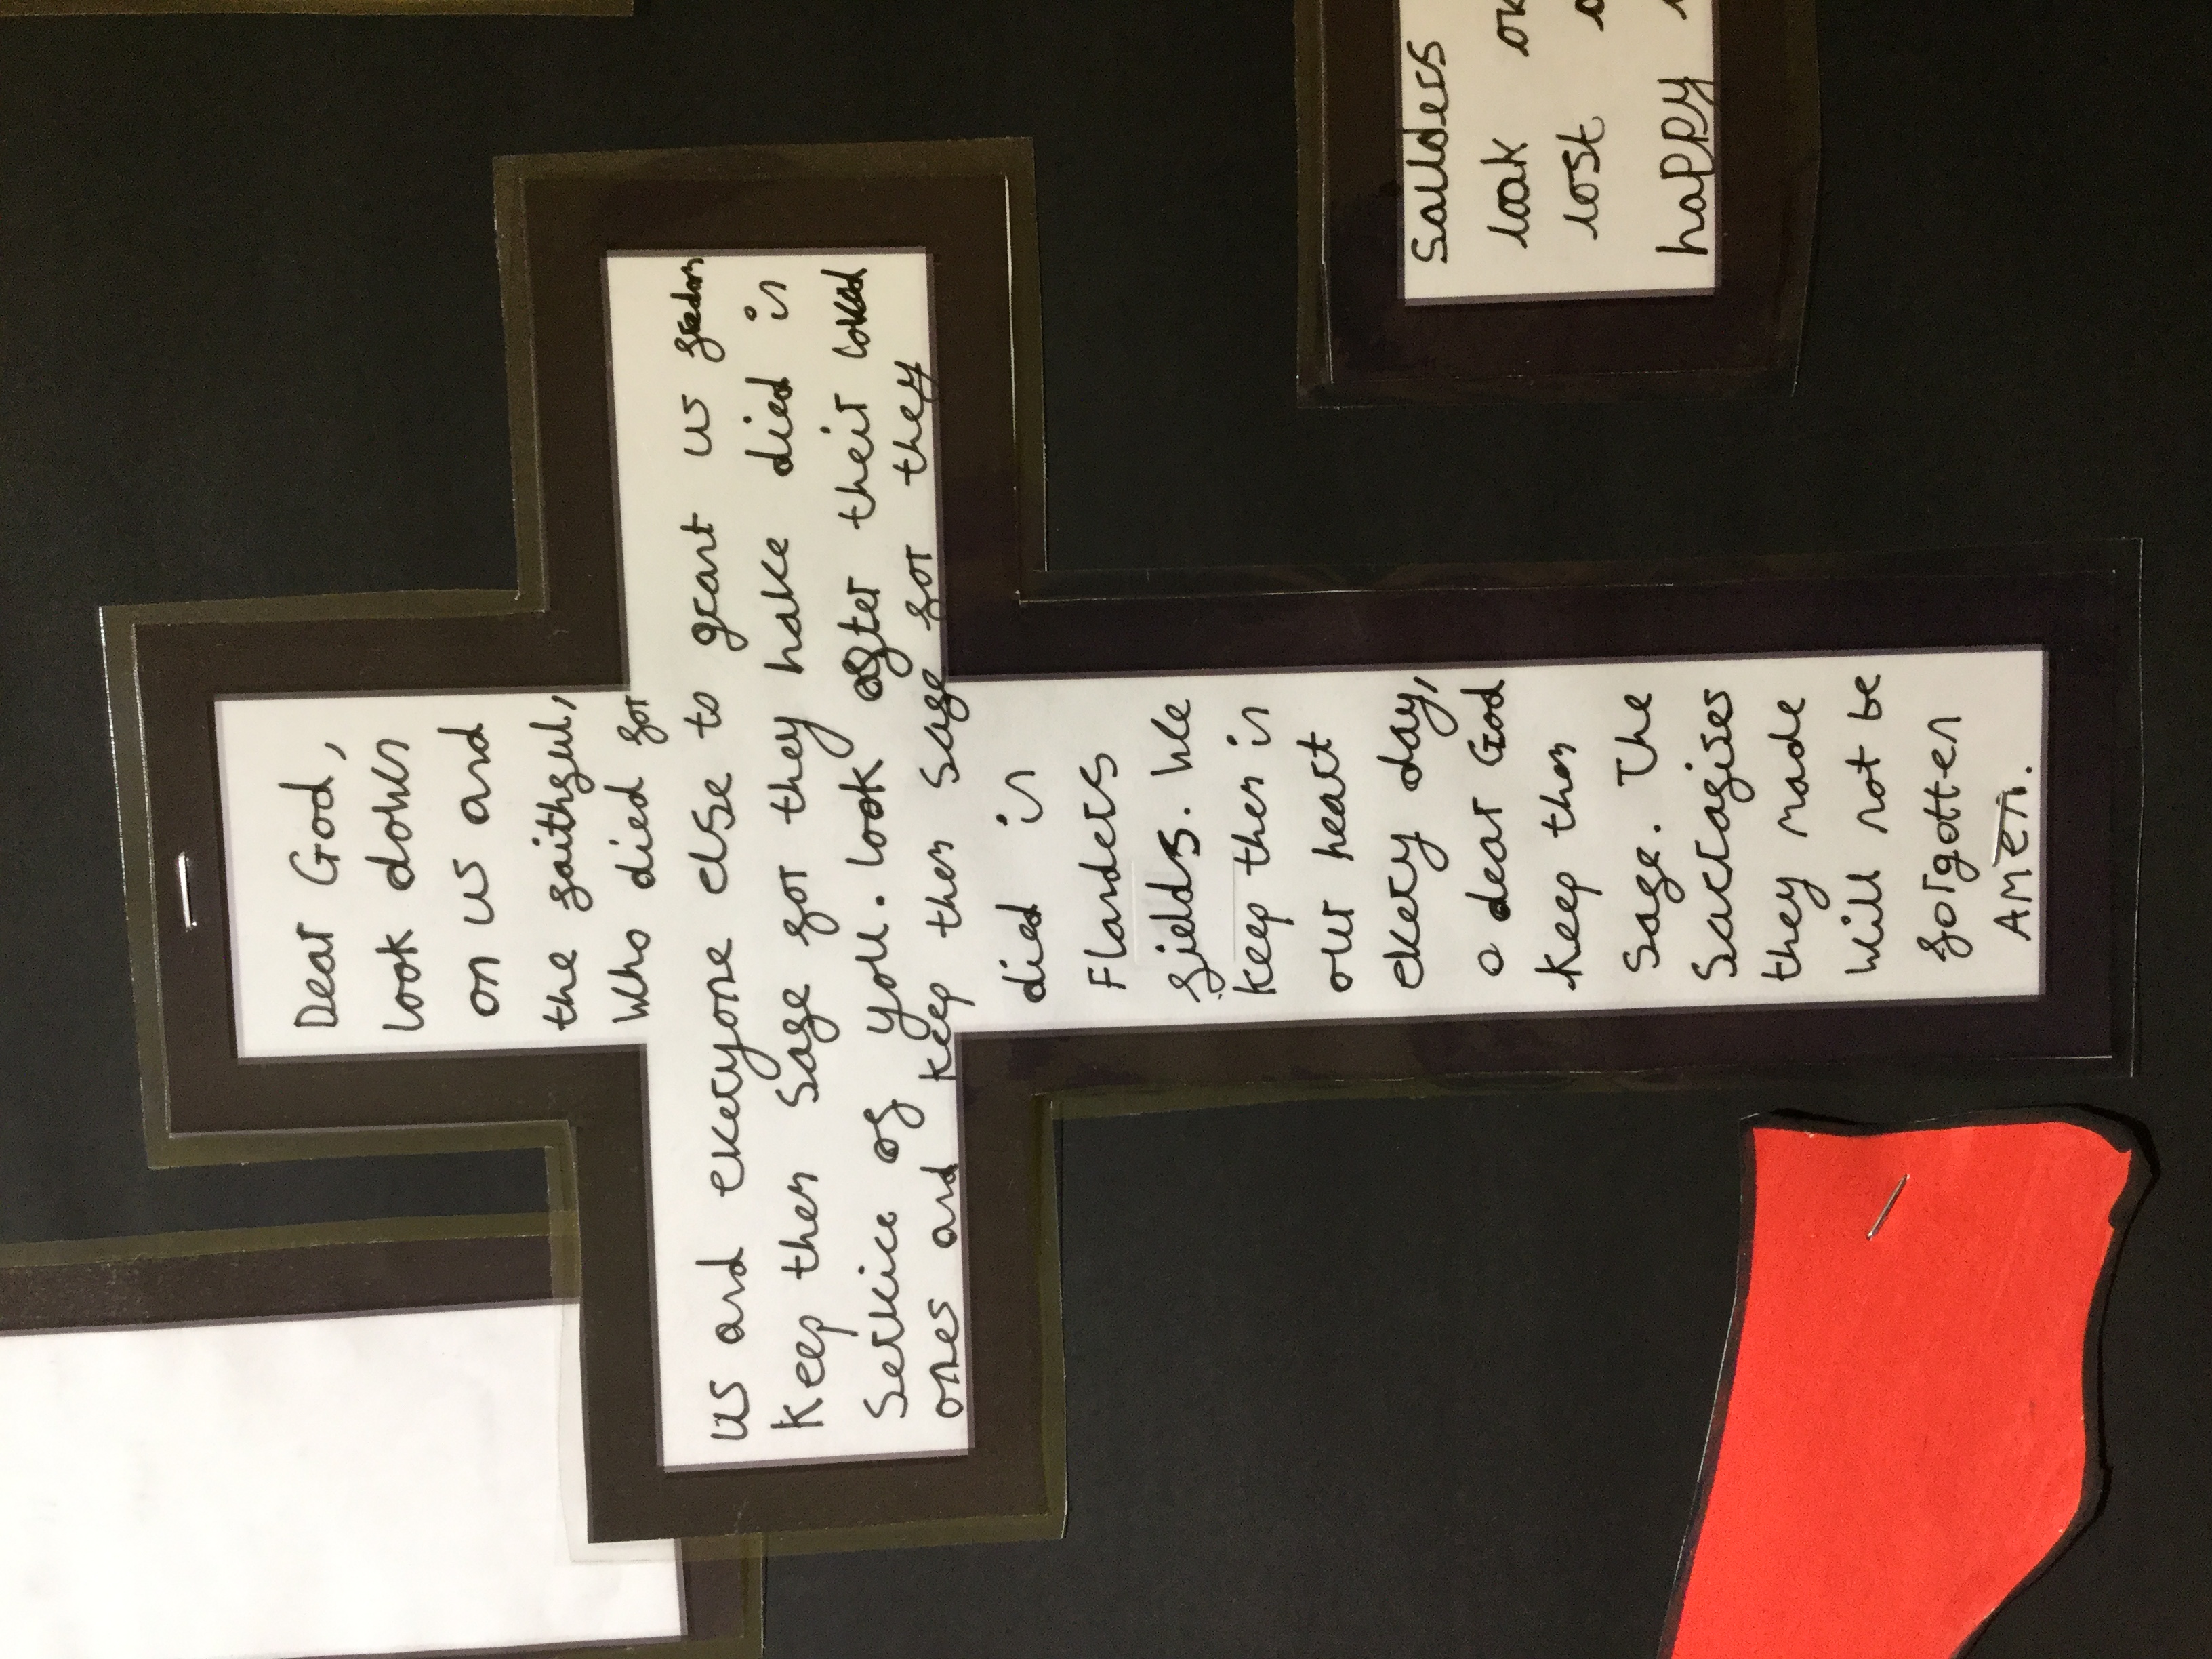 Dear God,
look down
on us and
the faithful,
who died for
us and everyone else to grant us fredom
keep them safe for they have died in
service of you. look after their loved
ones and keep them safe for they
died in
Flanders
fields. We
keep them in
our heart
every day,
o dear God
keep them
safe. The
sacrafises
they made
will not be
forgotten
AMen.
saulders
look
lost
happy